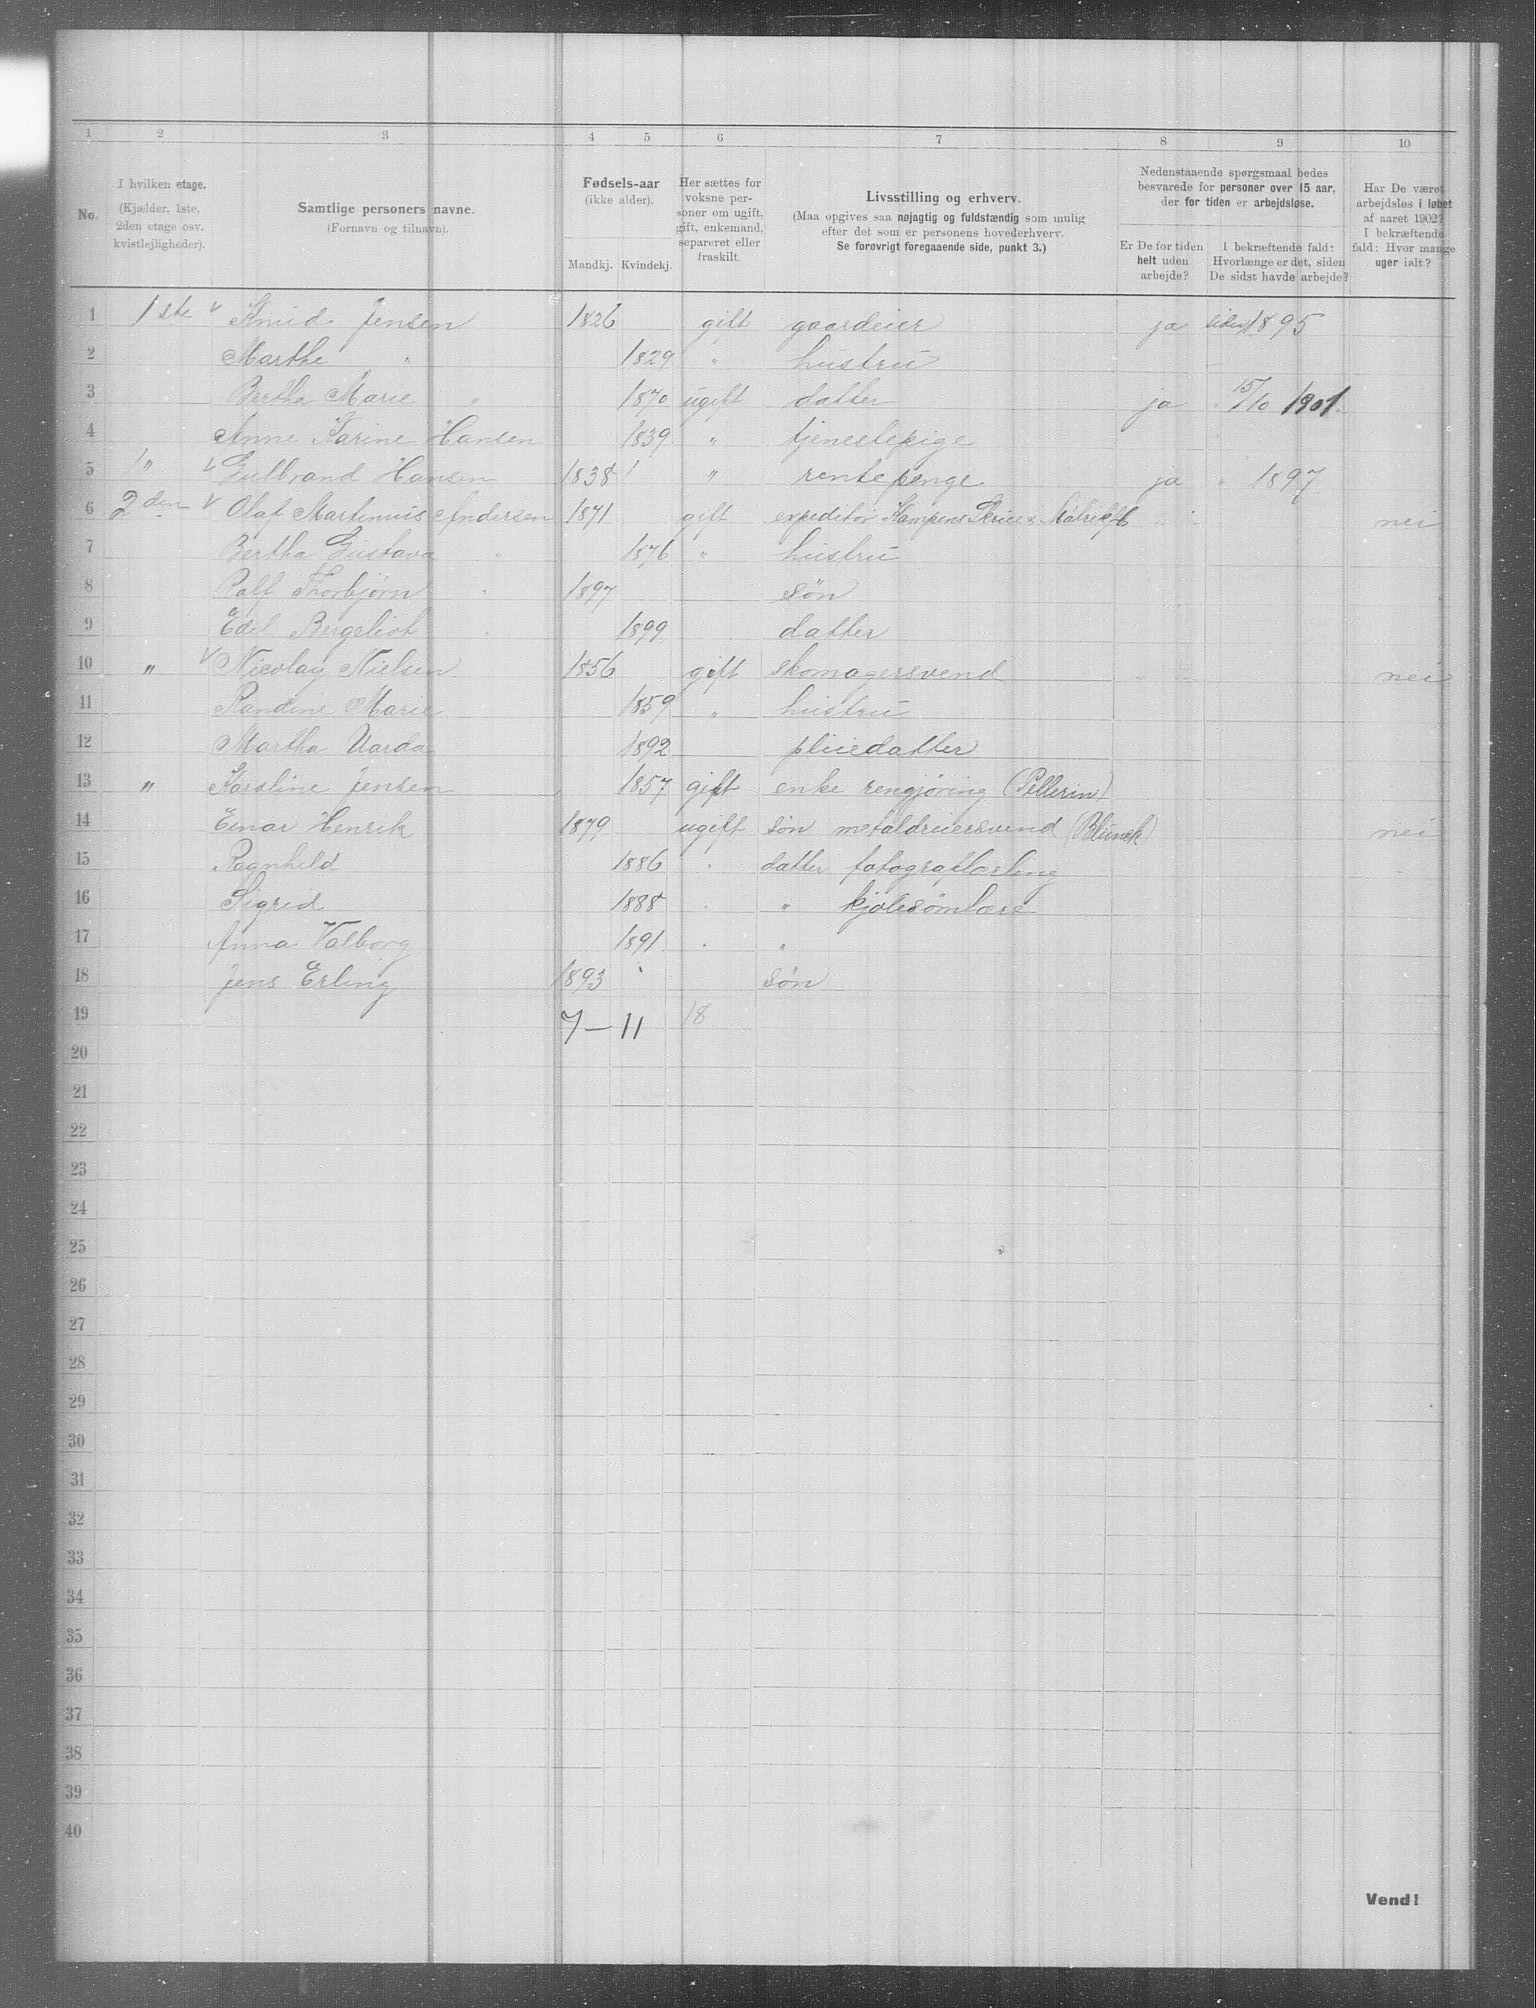 1 2 3 4 5 6 7 8 9 10
No. I hvilken etage. (Kjælder, 1ste, 2den etage osv. kvistlejligheder). Samtlige personers navne. (Fornavn og tilnavn). Fødsels-aar (ikke alder). Mandkj. Kvindekj. Her sættes for voksne personer om ugift, gift, enkemand, separeret eller fraskilt. Livsstilling og erhverv. (Maa opgives saa nøjagtig og fuldstændig som mulig efter det som er personens hovederhverv. Se forøvrigt foregaaende side, punkt 3.) Nedenstaaende spørgsmaal bedes besvarede for personer over 15 aar, der for tiden er arbejdsløse. Er De for tiden helt uden arbejde? I bekræftende fald: Hvorlænge er det, siden De sidst havde arbejde? Har De været arbejdsløs i løbet af aaret 1902? I bekræftende fald: Hvor mange uger ialt?
1 1ste v Knud Jensen 1826 gift gaardeier ja siden 1895
2 Marthe " 1829 " hustru
3 Bertha Marie " 1870 ugift datter ja " 15/10 1901.
4 Anne Karine Hansen 1839 " tjenestepige
5 1" v Gulbrand Hansen 1838 " rentepenge ja " 1897
6 2den v Olaf Martinius Andersen 1871 gift expeditør Kampens Skrue & nei
7 Bertha Gustava " 1876 " hustru
8 Ralf Thorbjørn " 1897 søn
9 Edel Bergeliot " 1899 datter
10 " v Nicolay Nielsen 1856 gift skomagersvend nei
11 Randine Marie 1859 " hustru
12 Martha Varda 1892 pleiedatter
13 " Karoline Jensen 1857 gift enke rengjøring (Pellerin)
14 Einar Henrik 1879 ugift søn metaldreiersvend (Blunck) nei
15 Ragnhild 1886 " datter fotograflærling
16 Sigrid 1888 " " kjolesømlære
17 Anna Valborg 1891 " "
18 Jens Erling 1893 søn
19 7 — 11 18
20
21
22
23
24
25
26
27
28
29
30
31
32
33
34
35
36
37
38
39
40
Vend!